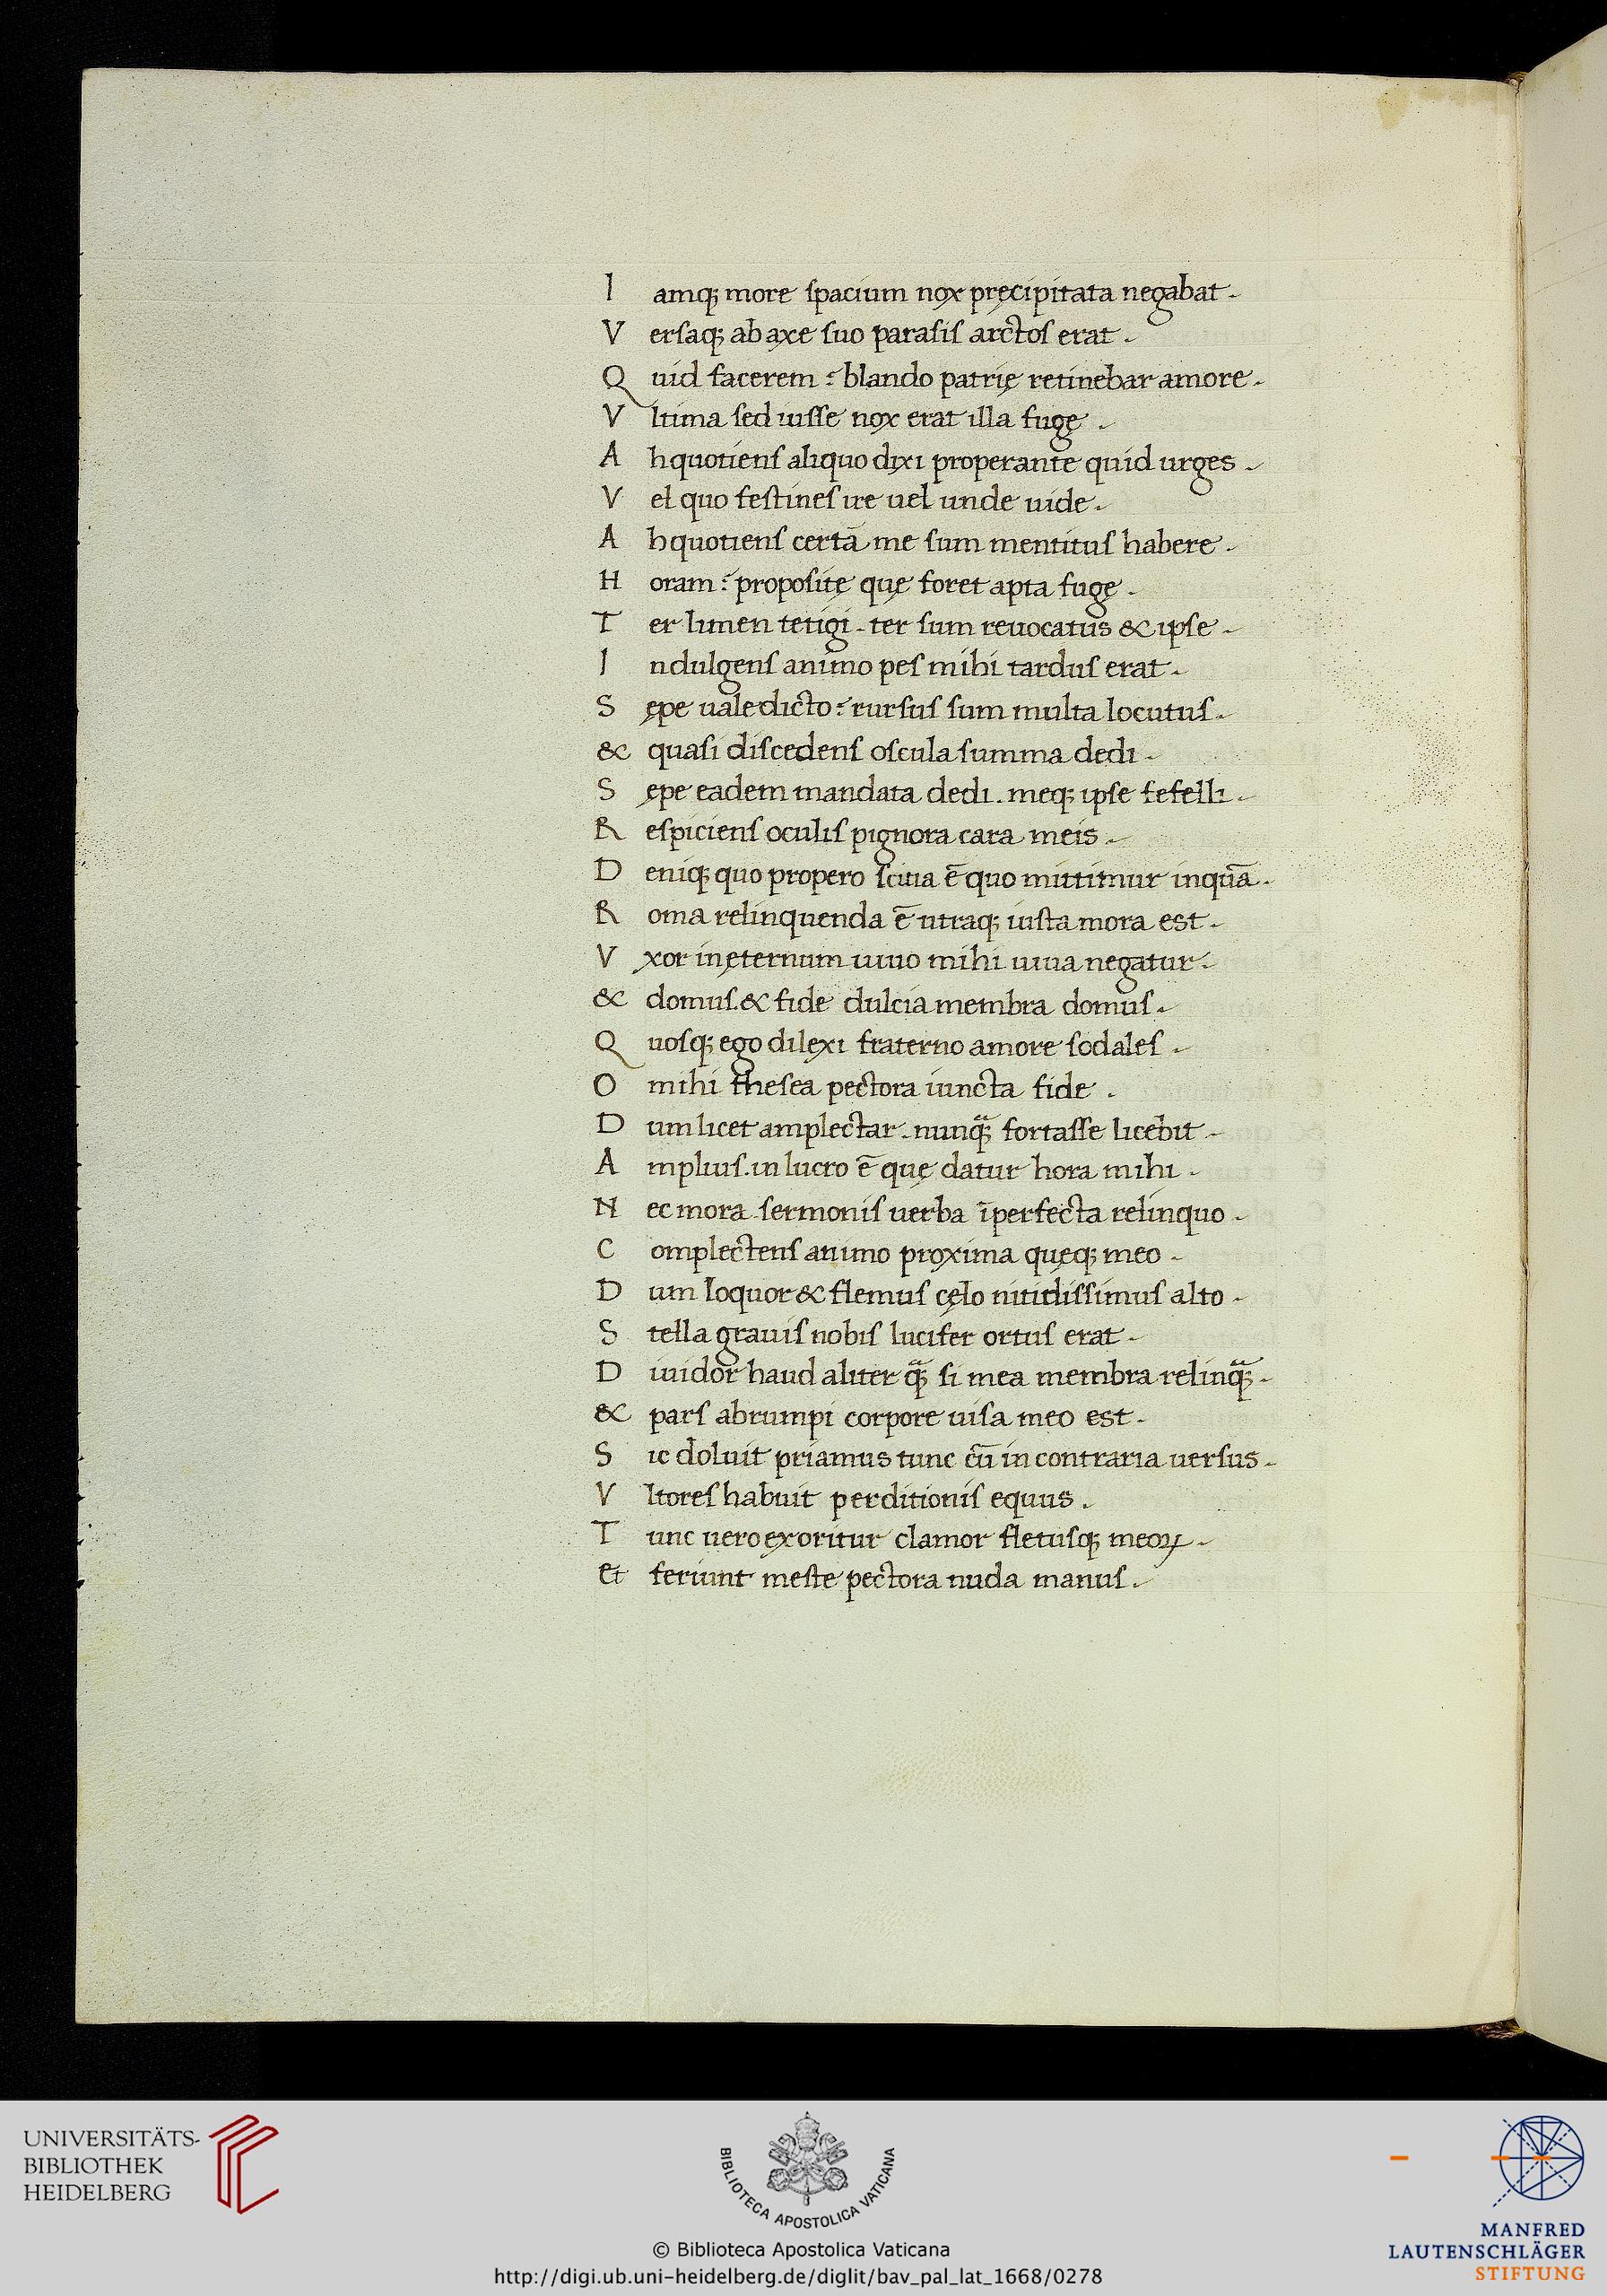 I amq; more spacium nox pręcipitata negabat.
V ersaq; ab axe suo parasis arctos erat.
Q uid facerem: blando patrię retinebar amore.
V ltima sed iusse nox erat illa fugę.
A h quotiens aliquo dixi properante quid urges.
V el quo festines ire uel unde uide.
A h quotiens certā me sum mentitus habere.
H oram: propositę quę foret apta fugę.
T er limen tetigi. ter sum reuocatus & ipse.
I ndulgens animo pes mihi tardus erat.
S ępe uale dicto: rursus sum multa locutus.
& quasi discedens oscula summa dedi.
S ępe eadem mandata dedi. meq; ipse fefelli.
R espiciens oculis pignora cara meis.
D eniq; quo propero scitia ē quo mittimur inquā.
R oma relinquenda ē utraq; iusta mora est.
V xor in ęternum uiuo mihi uiua negatur.
& domus. & fide dulcia membra domus.
Q uosq; ego dilexi fraterno amore sodales.
O mihi thesea pectora iuncta fide.
D um licet amplectar. nunq̃; fortasse licebit.
A mplius. in lucro ē quę datur hora mihi.
N ec mora sermonis uerba īperfecta relinquo.
C omplectens animo proxima quęq; meo.
D um loquor & flemus cęlo nitidissimus alto.
S tella grauis nobis lucifer ortus erat.
D iuidor haud aliter q̃; si mea membra relinq̃;.
& pars abrumpi corpore uisa meo est.
S ic doluit priamus tunc cū in contraria uersus.
V ltores habuit perditionis equus.
T unc uero exoritur clamor fletusq; meoꝝ.
Et feriunt meste pectora nuda manus.
UNIVERSITÄTS-
BIBLIOTHEK
HEIDELBERG
BIBLIOTECA APOSTOLICA VATICANA
© Biblioteca Apostolica Vaticana
http://digi.ub.uni-heidelberg.de/diglit/bav_pal_lat_1668/0278
MANFRED
LAUTENSCHLÄGER
STIFTUNG